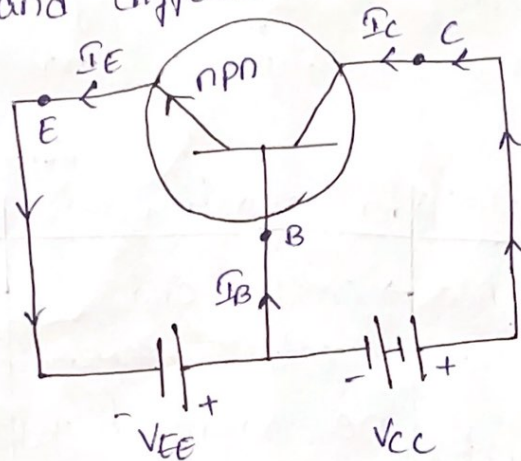 and
IE
npn
IC
C
E
B
IB
- +
- +
VEE
VCC